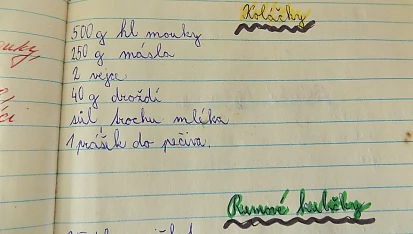 Koláčky
500 g hl mouky
250 g másla
2 vejce
40 g droždí
sůl trochu mléka
1 prášek do pečiva.
Rumové kuličky